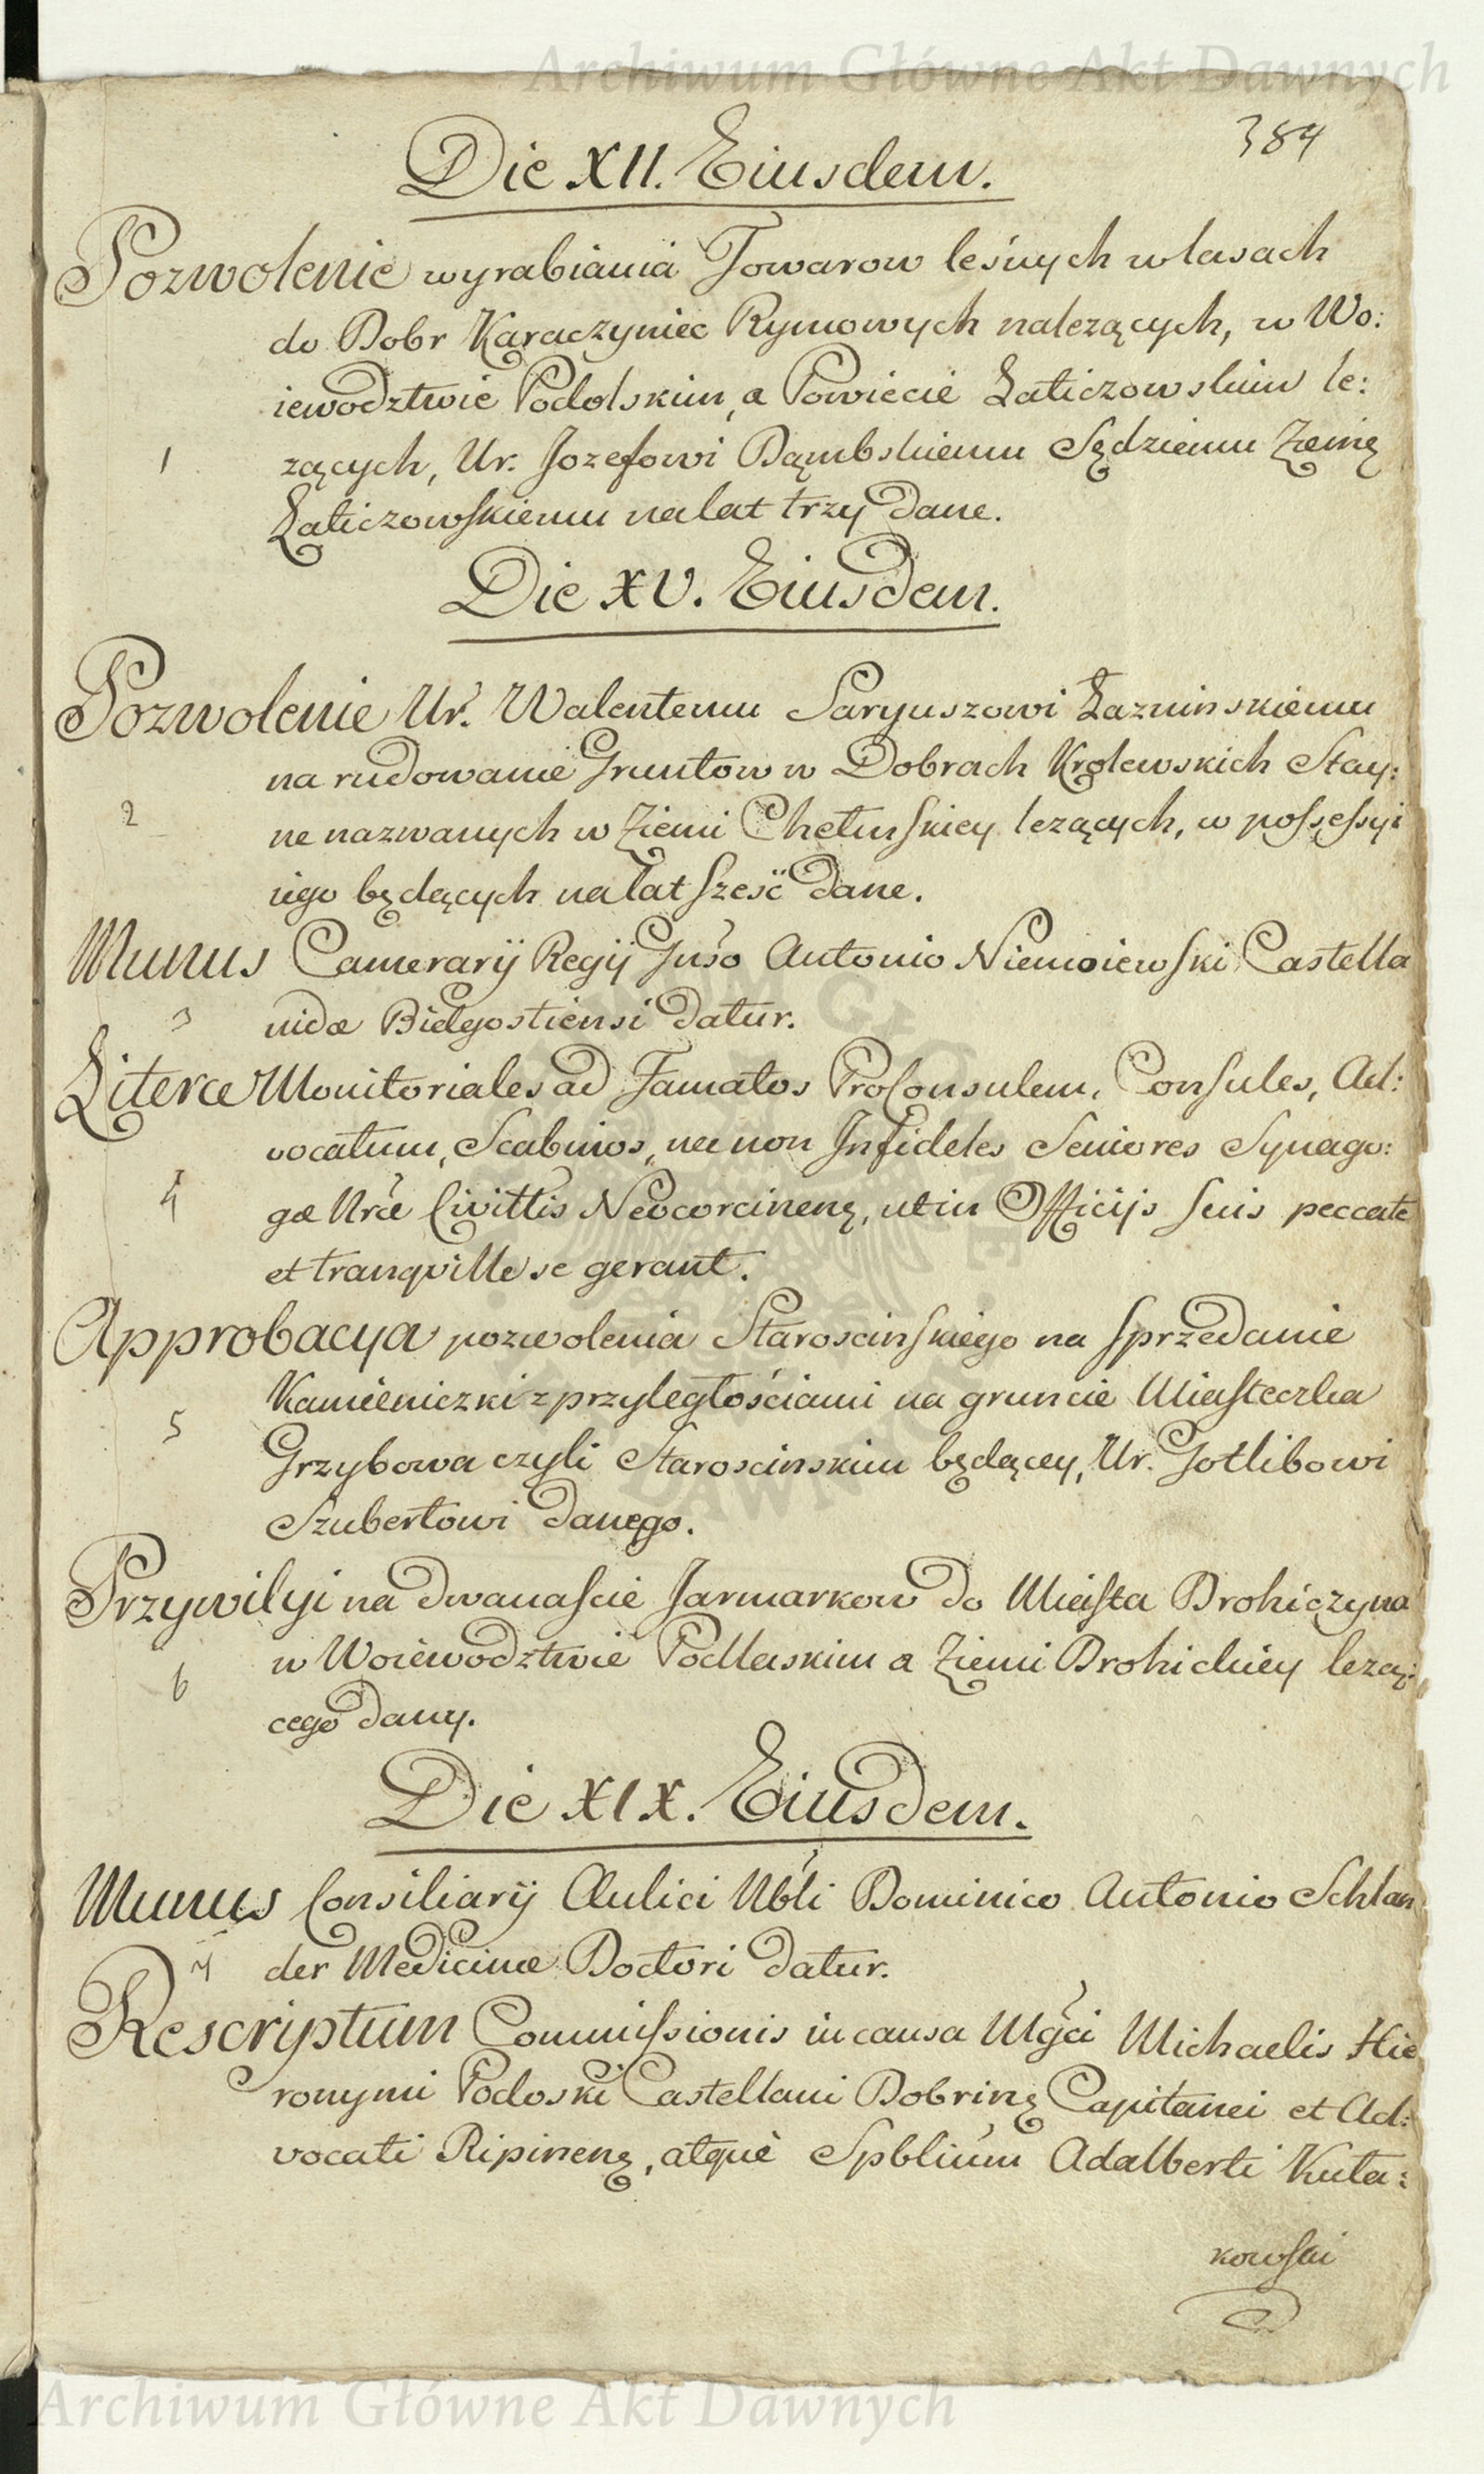 Archiwum Główne Akt Dawnych
384
Die XII. Eiusdem.
Pozwolenie wyrabiania Towarow leśnych w lasach
do Dobr Karaczyniec Rymowych należących, w Wo:
iewodztwie Podolskim, a Powiecie Laticzowskim le:
1 żących, Ur. Jozefowi Dąmbskiemu Sędziemu Ziemę
Laticzowskiemu na lat trzy dane.
Die XV. Eiusdem.
Pozwolenie Ur. Walentemu Saryuszowi Łaznińskiemu
na rudowanie Gruntow w Dobrach Krolewskich Stay:
2 ne nazwanych w Ziemi Chełmskiey leżących, w possessyi
iego będących na lat sześć dane.
Munus Camerarij Regij Gnso Antonio Niemoiewski Castella
3 nidæ Bidgostiensi datur.
Literæ Monitoriales ad Famatos ProConsulem, Consules, Ad:
vocatum, Scabinos, nec non Infideles Seniores Synago:
4 gæ Nræ Civittis Neocorcinenę, ut in Officijs suis peccate
et tranqville se gerant.
Approbacya pozwolenia Staroscinskiego na sprzedanie
Kamieniczki z przyległościami na gruncie Miasteczka
5 Grzybowa czyli Staroscinskim będącey, Ur. Gotlibowi
Szubertowi danego.
Przywilyi na dwanaście Jarmarkow do Miasta Drohiczyna
6 w Woiewodztwie Podlaskim a Ziemi Drohickiey leżą:
cego dany.
Die XIX. Eiusdem.
Munus Consiliarij Aulici Nbli Dominico Antonio Schlan
7 der Medicinæ Doctori datur.
Rescriptum Commissionis in causa Mgci Michaelis Hie
ronymi Podoski Castellani Dobrinę Capitanei et Ad:
vocati Ripinenę, atque Spblium Adalberti Kuta:
kowski
Archiwum Główne Akt Dawnych